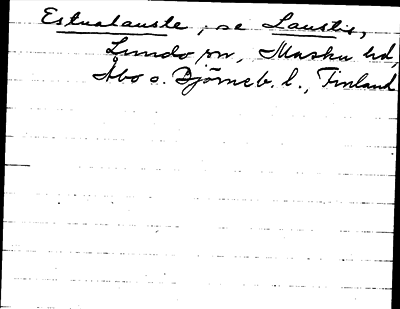 Estualauste, se Laustis,
Lundo sn, Masku hd,
Åbo o. Björneb. l., Finland